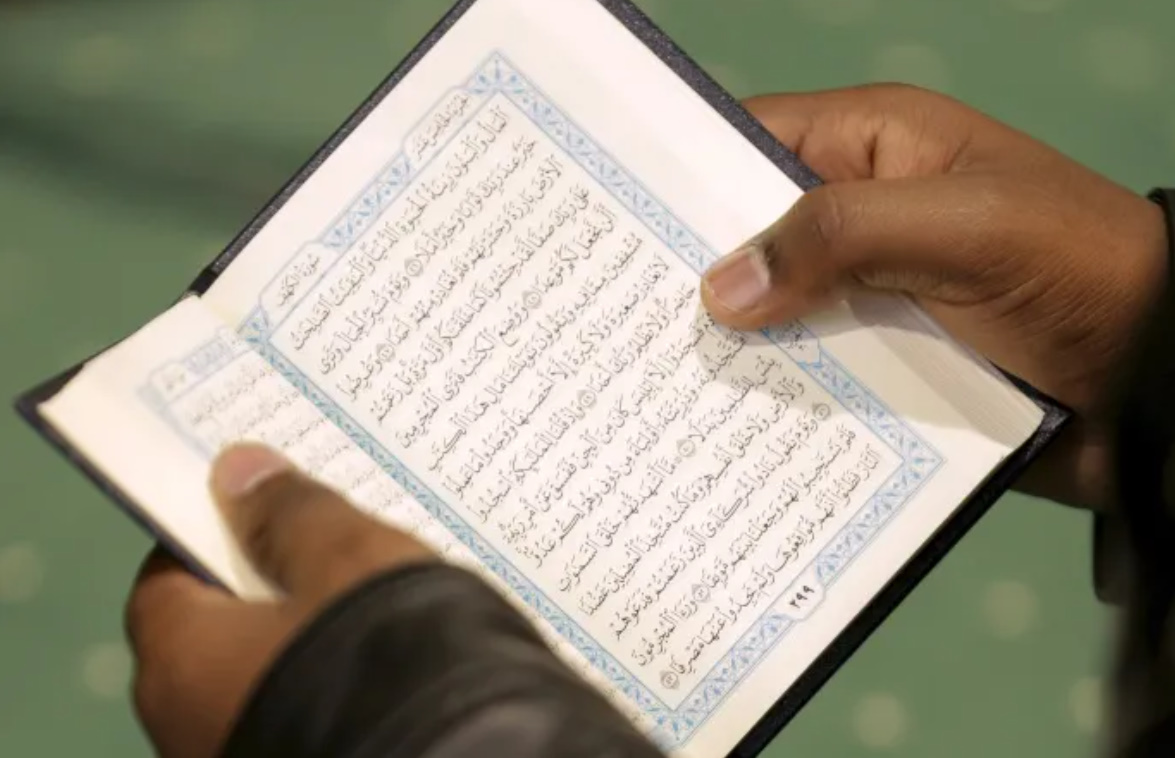 سُورَةُ الكَهۡفِ
ٱلۡمَالُ وَٱلۡبَنُونَ زِينَةُ ٱلۡحَيَوٰةِ ٱلدُّنۡيَاۖ وَٱلۡبَٰقِيَٰتُ ٱلصَّٰلِحَٰتُ
خَيۡرٌ عِندَ رَبِّكَ ثَوَابٗا وَخَيۡرٌ أَمَلٗا ٤٦ وَيَوۡمَ نُسَيِّرُ ٱلۡجِبَالَ وَتَرَى
ٱلۡأَرۡضَ بَارِزَةٗ وَحَشَرۡنَٰهُمۡ فَلَمۡ نُغَادِرۡ مِنۡهُمۡ أَحَدٗا ٤٧ وَعُرِضُواْ
عَلَىٰ رَبِّكَ صَفّٗا لَّقَدۡ جِئۡتُمُونَا كَمَا خَلَقۡنَٰكُمۡ أَوَّلَ مَرَّةِۭۚ بَلۡ زَعَمۡتُمۡ
أَلَّن نَّجۡعَلَ لَكُم مَّوۡعِدٗا ٤٨ وَوُضِعَ ٱلۡكِتَٰبُ فَتَرَى ٱلۡمُجۡرِمِينَ
مُشۡفِقِينَ مِمَّا فِيهِ وَيَقُولُونَ يَٰوَيۡلَتَنَا مَالِ هَٰذَا ٱلۡكِتَٰبِ
لَا يُغَادِرُ صَغِيرَةٗ وَلَا كَبِيرَةً إِلَّآ أَحۡصَىٰهَاۚ وَوَجَدُواْ مَا عَمِلُواْ
حَاضِرٗاۗ وَلَا يَظۡلِمُ رَبُّكَ أَحَدٗا ٤٩ وَإِذۡ قُلۡنَا لِلۡمَلَٰٓئِكَةِ ٱسۡجُدُواْ
إِلَّآ إِبۡلِيسَ كَانَ مِنَ ٱلۡجِنِّ فَفَسَقَ عَنۡ أَمۡرِ رَبِّهِۦٓۗ
وَذُرِّيَّتَهُۥٓ أَوۡلِيَآءَ مِن دُونِي وَهُمۡ لَكُمۡ عَدُوُّۢۚ
بِئۡسَ لِلظَّٰلِمِينَ بَدَلٗا ٥٠ مَّآ أَشۡهَدتُّهُمۡ خَلۡقَ ٱلسَّمَٰوَٰتِ
وَٱلۡأَرۡضِ وَلَا خَلۡقَ أَنفُسِهِمۡ وَمَا كُنتُ مُتَّخِذَ ٱلۡمُضِلِّينَ عَضُدٗا
٥١ وَيَوۡمَ يَقُولُ نَادُواْ شُرَكَآءِيَ ٱلَّذِينَ زَعَمۡتُمۡ فَدَعَوۡهُمۡ
فَلَمۡ يَسۡتَجِيبُواْ لَهُمۡ وَجَعَلۡنَا بَيۡنَهُم مَّوۡبِقٗا ٥٢ وَرَءَا ٱلۡمُجۡرِمُونَ
ٱلنَّارَ فَظَنُّوٓاْ أَنَّهُم مُّوَاقِعُوهَا وَلَمۡ يَجِدُواْ عَنۡهَا مَصۡرِفٗا ٥٣
٢٩٩